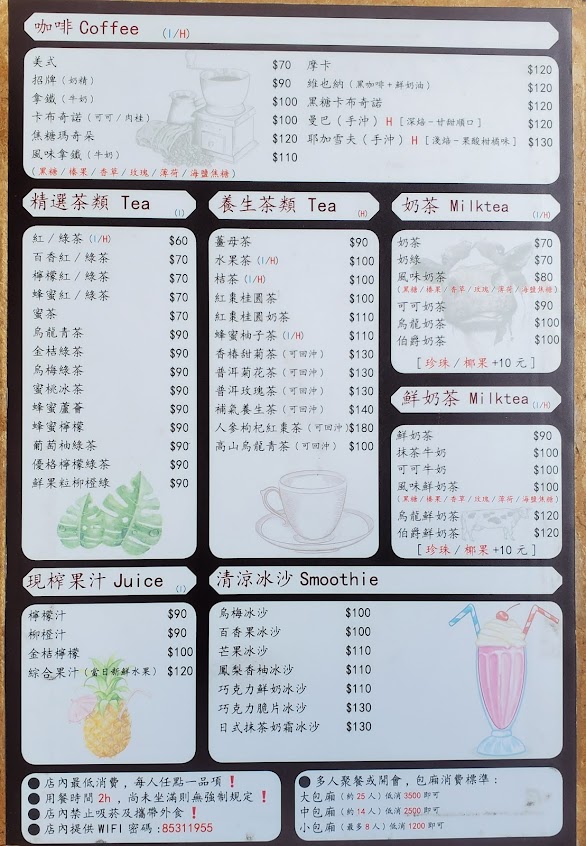 咖啡 Coffee (I/H)
美式 $70
招牌（奶精） $90
拿鐵（牛奶） $100
卡布奇諾（可可/肉桂） $100
焦糖瑪奇朵 $120
風味拿鐵（牛奶） $110
(黑糖/榛果/香草/玫瑰/薄荷/海鹽焦糖)
摩卡 $120
維也納（黑咖啡+鮮奶油） $120
黑糖卡布奇諾 $120
曼巴（手沖）H［深焙-甘甜順口］ $120
耶加雪夫（手沖）H［淺焙-果酸柑橘味］ $130
精選茶類 Tea (I)
紅/綠茶 (I/H) $60
百香紅/綠茶 $70
檸檬紅/綠茶 $70
蜂蜜紅/綠茶 $70
蜜茶 $70
烏龍青茶 $90
金桔綠茶 $90
烏梅綠茶 $90
蜜桃冰茶 $90
蜂蜜蘆薈 $90
蜂蜜檸檬 $90
葡萄柚綠茶 $90
優格檸檬綠茶 $90
鮮果粒柳橙綠 $90
養生茶類 Tea (H)
薑母茶 $90
水果茶 (I/H) $100
桔茶 (I/H) $100
紅棗桂圓茶 $100
紅棗桂圓奶茶 $110
蜂蜜柚子茶 (I/H) $110
香椿甜菊茶（可回沖） $130
普洱菊花茶（可回沖） $130
普洱玫瑰茶（可回沖） $130
補氣養生茶（可回沖） $140
人參枸杞紅棗茶（可回沖） $180
高山烏龍青茶（可回沖） $100
奶茶 Milktea (I/H)
奶茶 $70
奶綠 $70
風味奶茶 $80
(黑糖/榛果/香草/玫瑰/薄荷/海鹽焦糖)
可可奶茶 $90
烏龍奶茶 $100
伯爵奶茶 $100
［珍珠/椰果+10元］
鮮奶茶 Milktea (I/H)
鮮奶茶 $90
抹茶牛奶 $100
可可牛奶 $100
風味鮮奶茶 $100
(黑糖/榛果/香草/玫瑰/薄荷/海鹽焦糖)
烏龍鮮奶茶 $120
伯爵鮮奶茶 $120
［珍珠/椰果+10元］
現榨果汁 Juice (I)
檸檬汁 $90
柳橙汁 $90
金桔檸檬 $100
綜合果汁（當日新鮮水果） $120
清涼冰沙 Smoothie
烏梅冰沙 $100
百香果冰沙 $100
芒果冰沙 $110
鳳梨香柚冰沙 $110
巧克力鮮奶冰沙 $110
巧克力脆片冰沙 $130
日式抹茶奶霜冰沙 $130
●店內最低消費，每人任點一品項！
●用餐時間2h，尚未坐滿則無強制規定！
●店內禁止吸菸及攜帶外食！
●店內提供WIFI密碼:85311955
●多人聚餐或開會，包廂消費標準：
大包廂（約25人）低消3500即可
中包廂（約14人）低消2500即可
小包廂（最多8人）低消1200即可